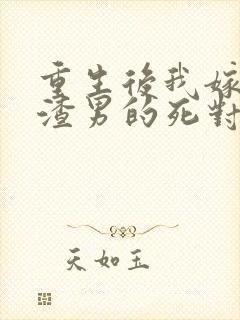 重生後我嫁
渣男的死對
天如玉